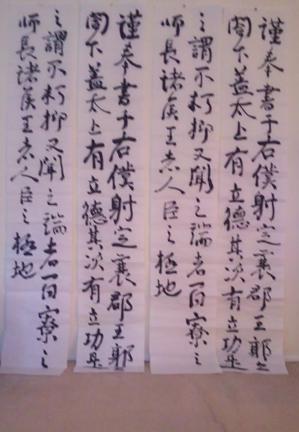 謹奉書于右僕射定襄郡王郭公
閣下蓋太上有立德其次有立功是
之謂不朽抑又聞之端者百寮之
師長諸侯王者人臣之極地
謹奉書于右僕射定襄郡王郭公
閣下蓋太上有立德其次有立功是
之謂不朽抑又聞之端者百寮之
師長諸侯王者人臣之極地